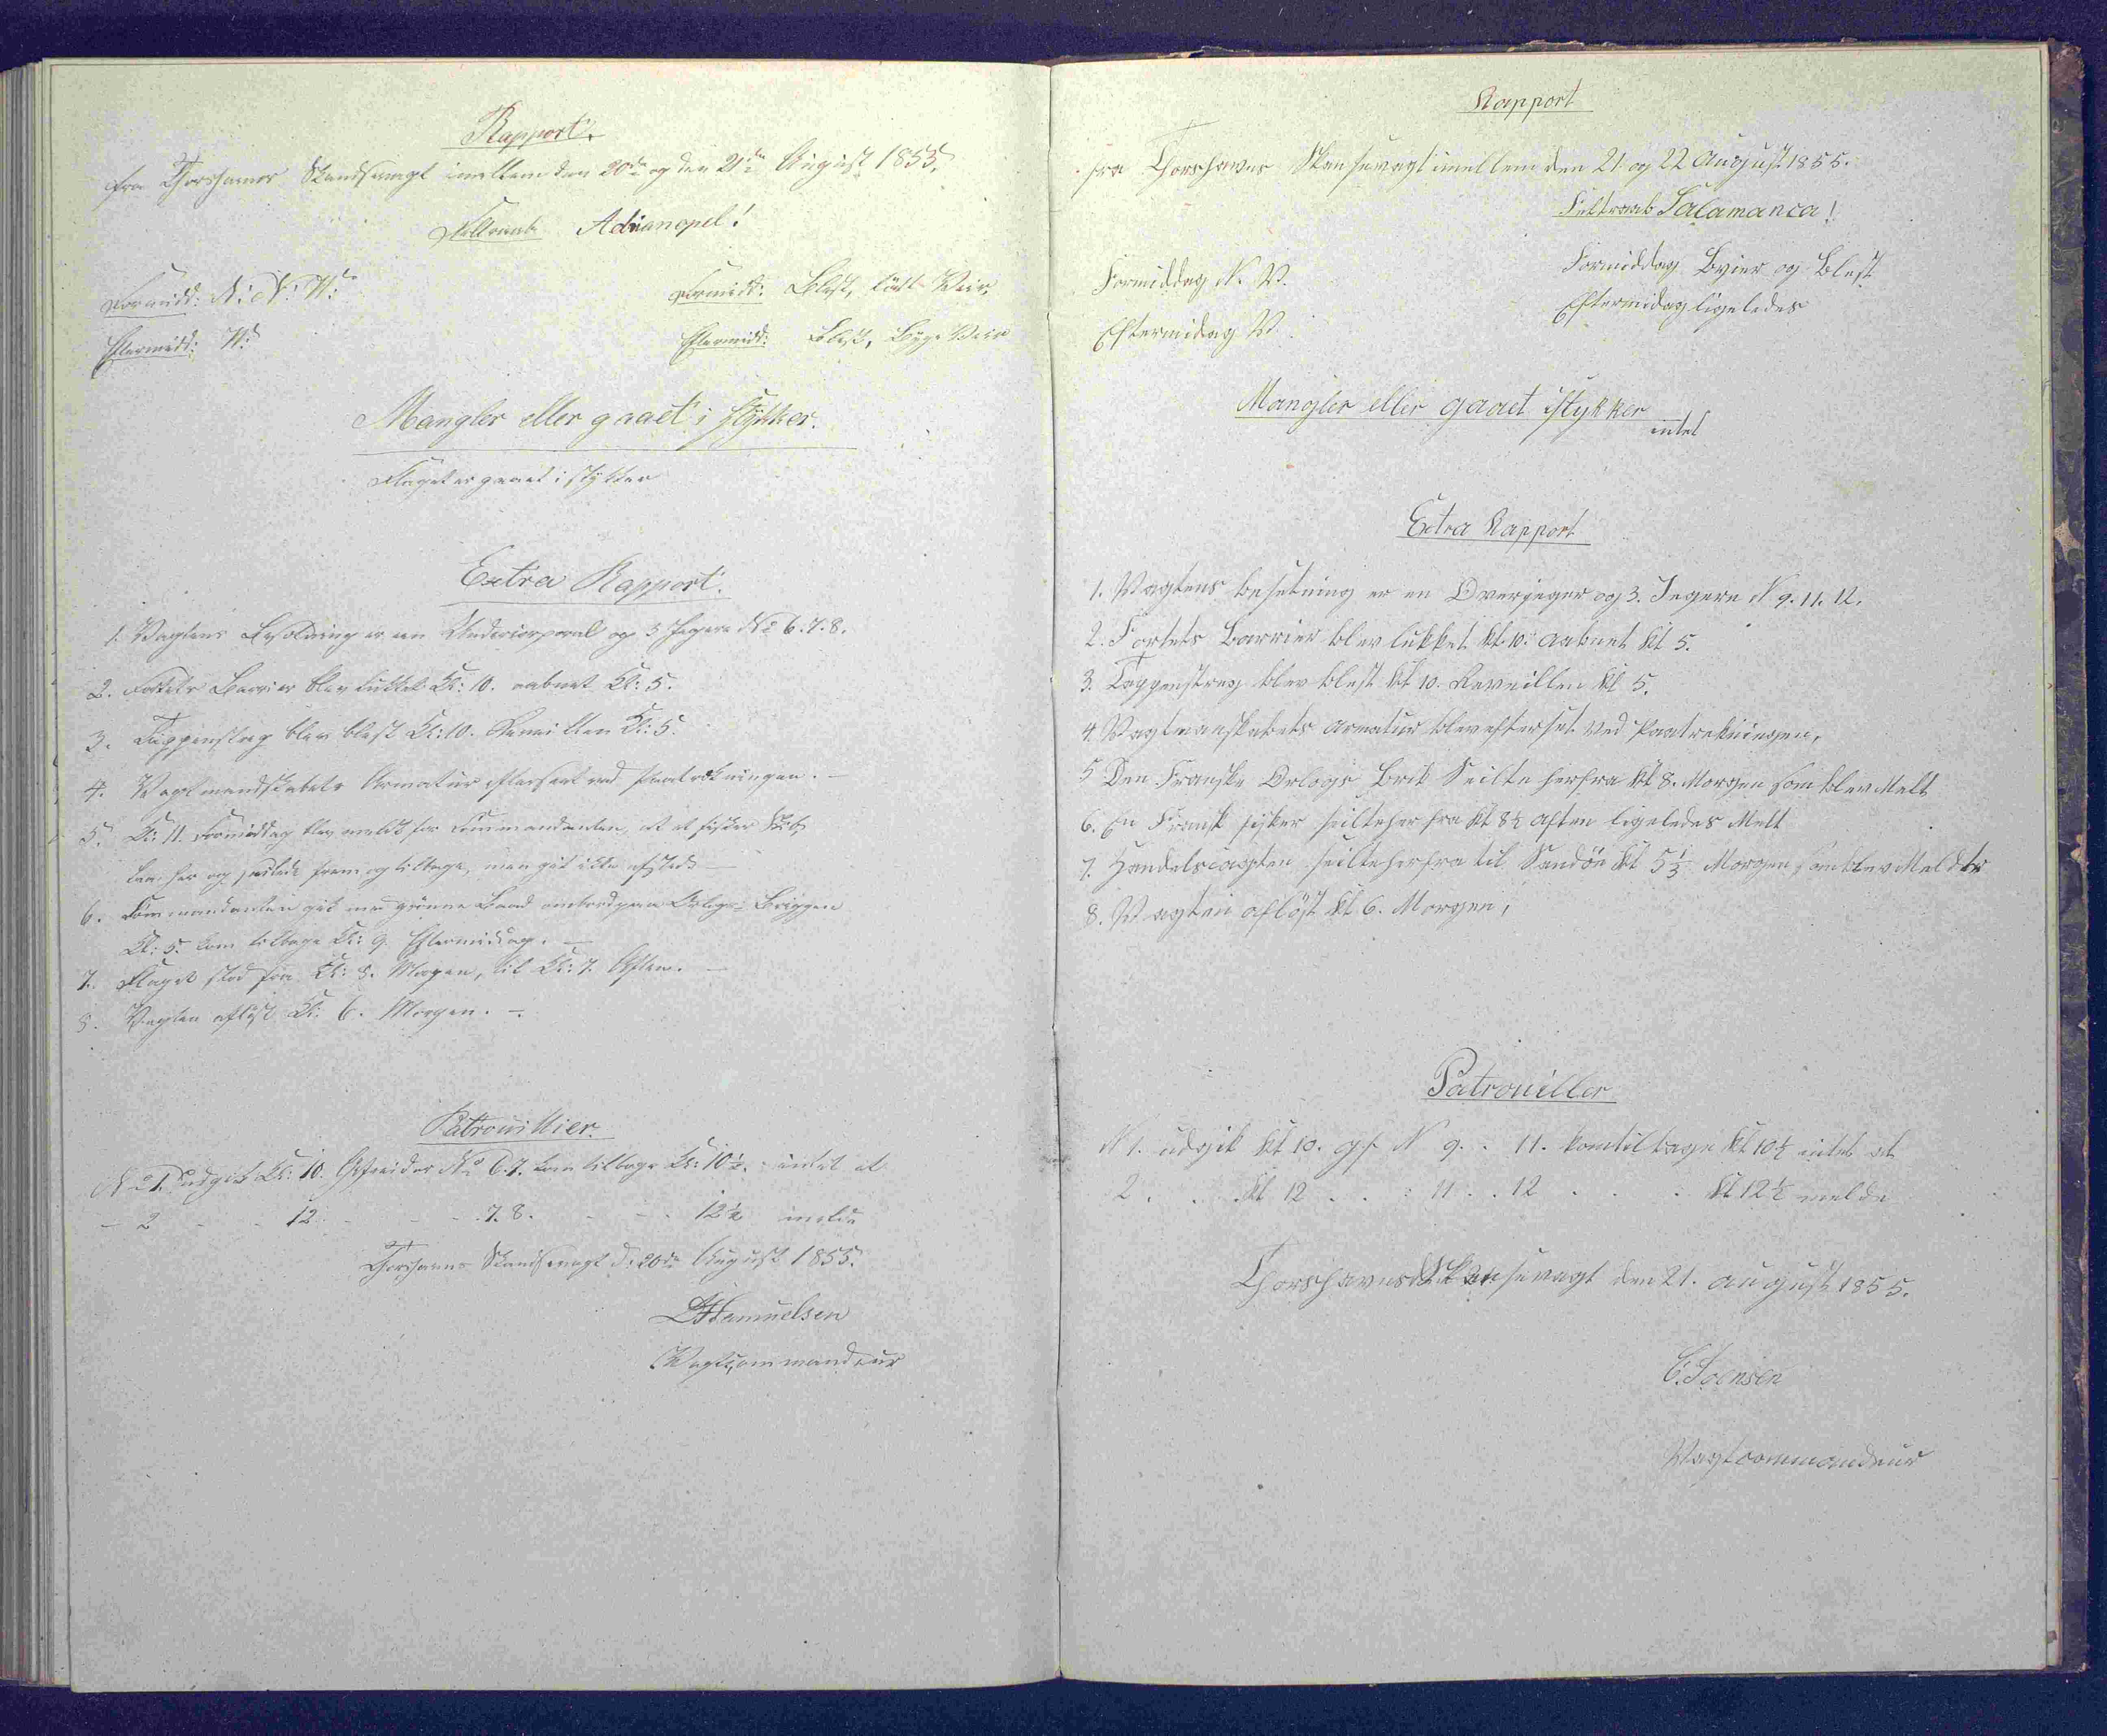 Rapport.
fra Thorshavns Skandsevagt imellem den 20de og den 21de August 1855.
Feltraab Adrianopel!
Formidd: N: N: W:
Formidd: Blest, Kált Veir,
Eftermidd: W:
Eftermidd: Blest, Byge Veir
Mangler eller gaaet i stykker.
Flaget er gaaet i stykker
Extra Rapport.
1. Vagtens Besætning er een Undercorporal og 3 Jegere No 6. 7. 8.
2. Fortets Barrier blev lukket Kl: 10. aabnet Kl: 5.
3. Tappenstreg blev blest Kl: 10. Reveillen Kl: 5.
4. Vagtmandskabets Armatur efterseet ved Paatrekningen. —
5. Kl: 11. Formiddag blev meldt for Commandanten, at et fisker Skib
laa her og seilede frem og tilbage, men gik ikke afsteds —
6. Commandanten gik med grønne Baad ombord paa Orlogs-Briggen
Kl: 5. kom tilbage Kl: 9. Eftermiddag. —
7. Flaget stod fra Kl: 8. Morgen, til Kl: 7. Aften. —
8. Vagten afløst Kl: 6. Morgen. —
Patrouillier.
No 1. udgik Kl: 10. Gefreider No 6. 7. kom tilbage Kl: 10½. intet at
— 2 - - 12 - - - 7. 8. - - - 12½ melde
Thorshavns Skandsevagt d: 20de August 1855.
Samuelsen
Vagtcommandeur
Rapport
fra Thorshavns Skansevagt imellem den 21. og 22 August 1855.
Feltraab Salamanca!
Formiddag N. V.
Formiddag Byier og Blest
Eftermidag V.
Eftermidag ligeledes
Mangler eller gaaet istykker
intet
Extra Rapport
1. Vagtens besetning er en Overjeger og 3. Jegere N 9. 11. 12.
2. Fortets Barrier blev lukket kl 10. aabnet kl 5.
3. Tappenstreg blev blest kl 10. Reveillen kl 5.
4. Vagtmanskabets armatur blev efterset ved Paatrekningen,
5 Den Franske Orlogs Brik Seilte herfra kl 8. Morgen som blev Melt
6. En Fransk fisker seilte her fra kl 8½ aften ligeledes Melt
7. Handelsiagten seilte herfra til Sandöe kl 5⅓ Morgen som blev Meldt
8. Vagten aflöst kl 6. Morgen,
Patrouiller
N 1. udgik kl 10. gf N 9. . 11. kom tilbage kl 10½ intet at
2. . . kl 12 . . : 11 . . 12 . . . kl 12½ melde
Thorshavns Skansevagt den 21. august 1855.
C. Joensen
Vagtcommandeur